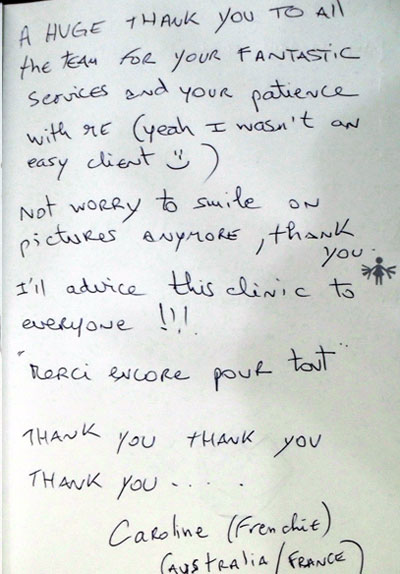 A HUGE THANK YOU TO All
the TEAM FOR YOUR FANTASTIC
Services and YOUR patience
with ME (yeah I wasn't an
easy client )
NOT WORRY to smile ON
pictures ANYMORE, thank
you.
I'll advice this clinic to
everyone !!!
"Merci encore pour tout"
THANK YOU THANK YOU
THANK YOU . . . . .
Caroline (Frenchie)
(AUSTRALIA / FRANCE)